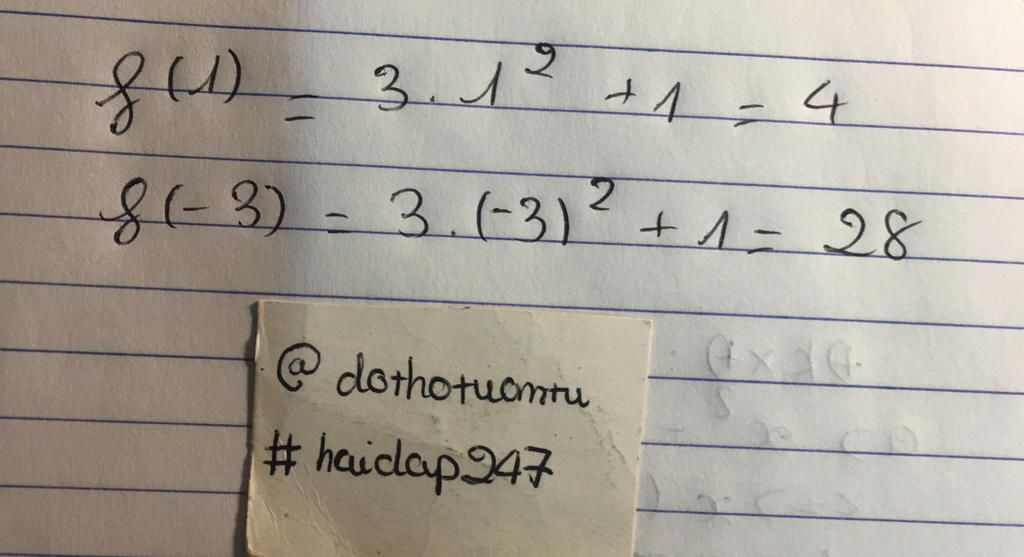 f(1) = 3.1² + 1 = 4
f(-3) = 3.(-3)² + 1 = 28
@ dothotuantu
# hoidap247